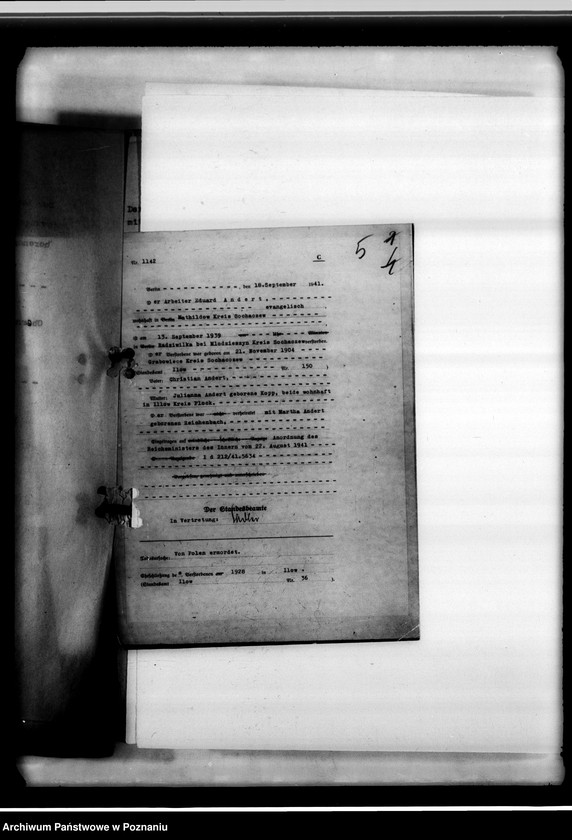 5
Nr. 1142
C
Berlin, den 18. September 1941.
Der Arbeiter Eduard Andert,
evangelisch
wohnhaft in Berlin Mathildow Kreis Sochaczew
ist am 15. September 1939
in Berlin Radziwilka bei Mlodzieszyn Kreis Sochaczew verstorben.
Der Verstorbene war geboren am 21. November 1904
Grabowiece Kreis Sochaczew
(Standesamt Ilow Nr. 150)
Vater: Christian Andert,
Mutter: Julianna Andert geborene Kopp, beide wohnhaft
in Illów Kreis Plock.
Der Verstorbene war verheiratet mit Martha Andert
geborenen Reinhenbach,
Eingetragen auf Anordnung des
Reichsministers des Innern vom 22. August 1941
I d 212/41.5634
Der Standesbeamte
In Vertretung:
Todesursache: Von Polen ermordet.
Eheschließung des Verstorbenen am 1928 in Ilow.
(Standesamt Ilow Nr. 36).
Archiwum Państwowe w Poznaniu